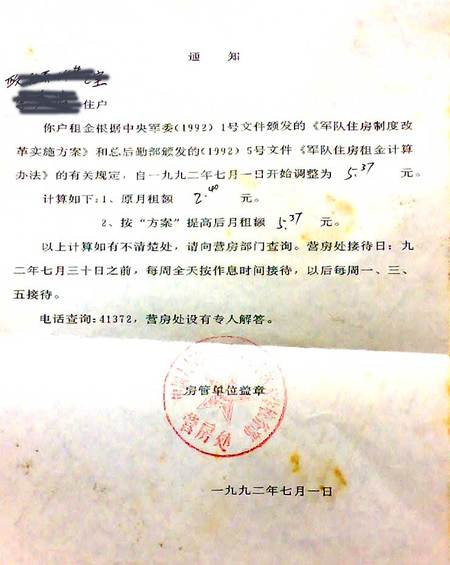 通 知
住户
你户租金根据中央军委(1992)1号文件颁发的《军队住房制度改
革实施方案》和总后勤部颁发的(1992)5号文件《军队住房租金计算
办法》的有关规定，自一九九二年七月一日开始调整为 5.37 元。
计算如下:1、原月租额 2.40 元。
2、按“方案”提高后月租额 5.37 元。
以上计算如有不清楚处，请向营房部门查询。营房处接待日：九
二年七月三十日之前，每周全天按作息时间接待，以后每周一、三、
五接待。
电话查询:41372，营房处设有专人解答。
房管单位盖章
营房处
一九九二年七月一日